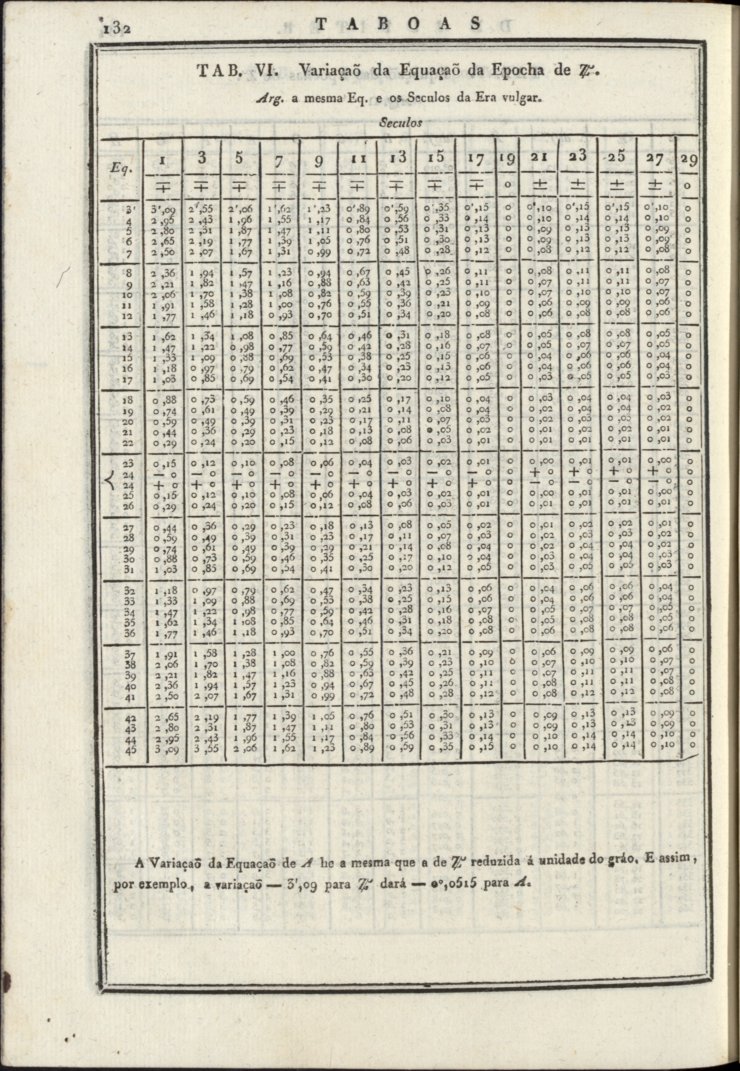 132 TABOAS
TAB. VI. Variaçaõ da Equaçaõ da Epocha de Z.
Arg. a mesma Eq. e os Seculos da Era vulgar.
Seculos
Eq. 1 3 5 7 9 11 13 15 17 19 21 23 25 27 29
∓ ∓ ∓ ∓ ∓ ∓ ∓ ∓ ∓ 0 ± ± ± ± 0
3' 3',09 2',55 2',06 1',62 1',23 0',89 0',59 0',35 0',15 0 0',10 0',15 0',15 0',10 0
4 2,95 2,43 1,96 1,55 1,17 0,84 0,56 0,33 0,14 0 0,10 0,14 0,14 0,10 0
5 2,80 2,31 1,87 1,47 1,11 0,80 0,53 0,31 0,13 0 0,09 0,13 0,13 0,09 0
6 2,65 2,19 1,77 1,39 1,05 0,76 0,51 0,30 0,13 0 0,09 0,13 0,13 0,09 0
7 2,50 2,07 1,67 1,31 0,99 0,72 0,48 0,28 0,12 0 0,08 0,12 0,12 0,08 0
8 2,36 1,94 1,57 1,23 0,94 0,67 0,45 0,26 0,11 0 0,08 0,11 0,11 0,08 0
9 2,21 1,82 1,47 1,16 0,88 0,63 0,42 0,25 0,11 0 0,07 0,11 0,11 0,07 0
10 2,06 1,70 1,38 1,08 0,82 0,59 0,39 0,23 0,10 0 0,07 0,10 0,10 0,07 0
11 1,91 1,58 1,28 1,00 0,76 0,55 0,36 0,21 0,09 0 0,06 0,09 0,09 0,06 0
12 1,77 1,46 1,18 0,93 0,70 0,51 0,34 0,20 0,08 0 0,06 0,08 0,08 0,06 0
13 1,62 1,34 1,08 0,85 0,64 0,46 0,31 0,18 0,08 0 0,05 0,08 0,08 0,05 0
14 1,47 1,22 0,98 0,77 0,59 0,42 0,28 0,16 0,07 0 0,05 0,07 0,07 0,05 0
15 1,33 1,09 0,88 0,69 0,53 0,38 0,25 0,15 0,06 0 0,04 0,06 0,06 0,04 0
16 1,18 0,97 0,79 0,62 0,47 0,34 0,23 0,13 0,06 0 0,04 0,06 0,06 0,04 0
17 1,03 0,85 0,69 0,54 0,41 0,30 0,20 0,12 0,05 0 0,03 0,05 0,05 0,03 0
18 0,88 0,73 0,59 0,46 0,35 0,25 0,17 0,10 0,04 0 0,03 0,04 0,04 0,03 0
19 0,74 0,61 0,49 0,39 0,29 0,21 0,14 0,08 0,04 0 0,02 0,04 0,04 0,02 0
20 0,59 0,49 0,39 0,31 0,23 0,17 0,11 0,07 0,03 0 0,02 0,03 0,03 0,02 0
21 0,44 0,36 0,29 0,23 0,18 0,13 0,08 0,05 0,02 0 0,01 0,02 0,02 0,01 0
22 0,29 0,24 0,20 0,15 0,12 0,08 0,06 0,03 0,01 0 0,01 0,01 0,01 0,01 0
23 0,15 0,12 0,10 0,08 0,06 0,04 0,03 0,02 0,01 0 0,00 0,01 0,01 0,00 0
24 — 0 — 0 — 0 — 0 — 0 — 0 — 0 — 0 — 0 0 + 0 + 0 + 0 + 0 0
24 + 0 + 0 + 0 + 0 + 0 + 0 + 0 + 0 + 0 0 — 0 — 0 — 0 — 0 0
25 0,15 0,12 0,10 0,08 0,06 0,04 0,03 0,02 0,01 0 0,00 0,01 0,01 0,00 0
26 0,29 0,24 0,20 0,15 0,12 0,08 0,06 0,03 0,01 0 0,01 0,01 0,01 0,01 0
27 0,44 0,36 0,29 0,23 0,18 0,13 0,08 0,05 0,02 0 0,01 0,02 0,02 0,01 0
28 0,59 0,49 0,39 0,31 0,23 0,17 0,11 0,07 0,03 0 0,02 0,03 0,03 0,02 0
29 0,74 0,61 0,49 0,39 0,29 0,21 0,14 0,08 0,04 0 0,02 0,04 0,04 0,02 0
30 0,88 0,73 0,59 0,46 0,35 0,25 0,17 0,10 0,04 0 0,03 0,04 0,04 0,03 0
31 1,03 0,85 0,69 0,54 0,41 0,30 0,20 0,12 0,05 0 0,03 0,05 0,05 0,03 0
32 1,18 0,97 0,79 0,62 0,47 0,34 0,23 0,13 0,06 0 0,04 0,06 0,06 0,04 0
33 1,33 1,09 0,88 0,69 0,53 0,38 0,25 0,15 0,06 0 0,04 0,06 0,06 0,04 0
34 1,47 1,22 0,98 0,77 0,59 0,42 0,28 0,16 0,07 0 0,05 0,07 0,07 0,05 0
35 1,62 1,34 1,08 0,85 0,64 0,46 0,31 0,18 0,08 0 0,05 0,08 0,08 0,05 0
36 1,77 1,46 1,18 0,93 0,70 0,51 0,34 0,20 0,08 0 0,06 0,08 0,08 0,06 0
37 1,91 1,58 1,28 1,00 0,76 0,55 0,36 0,21 0,09 0 0,06 0,09 0,09 0,06 0
38 2,06 1,70 1,38 1,08 0,82 0,59 0,39 0,23 0,10 0 0,07 0,10 0,10 0,07 0
39 2,21 1,82 1,47 1,16 0,88 0,63 0,42 0,25 0,11 0 0,07 0,11 0,11 0,07 0
40 2,36 1,94 1,57 1,23 0,94 0,67 0,45 0,26 0,11 0 0,08 0,11 0,11 0,08 0
41 2,50 2,07 1,67 1,31 0,99 0,72 0,48 0,28 0,12 0 0,08 0,12 0,12 0,08 0
42 2,65 2,19 1,77 1,39 1,05 0,76 0,51 0,30 0,13 0 0,09 0,13 0,13 0,09 0
43 2,80 2,31 1,87 1,47 1,11 0,80 0,53 0,31 0,13 0 0,09 0,13 0,13 0,09 0
44 2,95 2,43 1,96 1,55 1,17 0,84 0,56 0,33 0,14 0 0,10 0,14 0,14 0,10 0
45 3,09 3,55 2,06 1,62 1,23 0,89 0,59 0,35 0,15 0 0,10 0,14 0,14 0,10 0
A Variaçaõ da Equaçaõ de A he a mesma que a de Z reduzida á unidade do gráo. E assim,
por exemplo, a variaçaõ — 3',09 para Z dará — 0°,0515 para A.